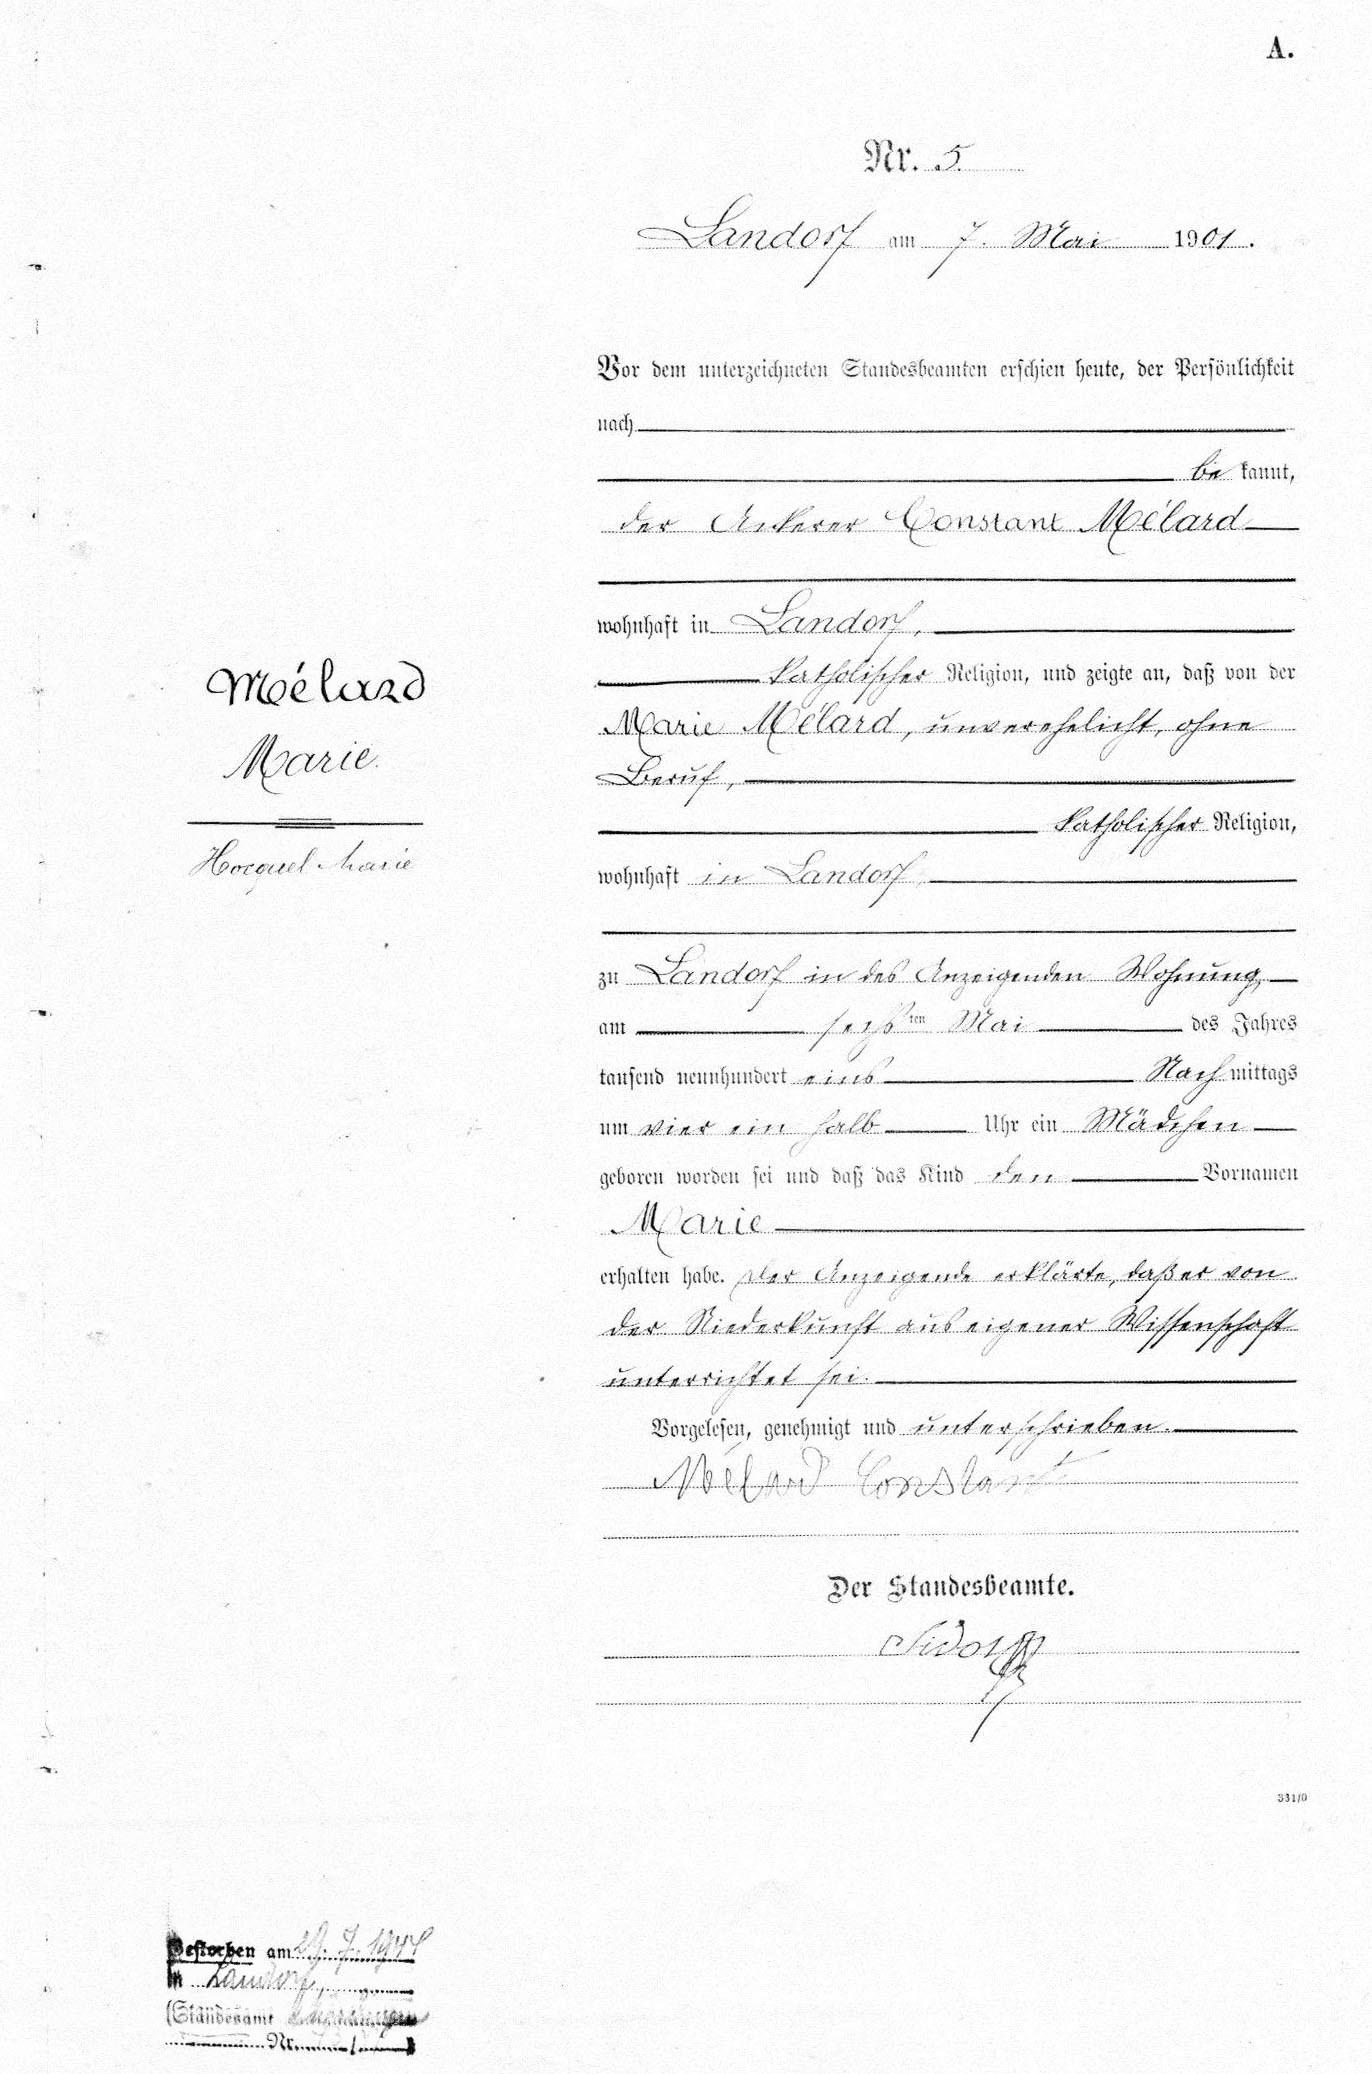 A.
Nr. 5.
Landorf am 7. Mai 1901.
Vor dem unterzeichneten Standesbeamten erschien heute, der Persönlichkeit
nach
be kannt,
der Ackerer Constant Mélard
wohnhaft in Landorf,
katholischer Religion, und zeigte an, daß von der
Marie Mélard, unverehelicht, ohne
Beruf,
katholischer Religion,
wohnhaft in Landorf,
zu Landorf in des Anzeigenden Wohnung,
am sechsten Mai des Jahres
tausend neunhundert eins Nach mittags
um vier ein halb Uhr ein Mädchen
geboren worden sei und daß das Kind den Vornamen
Marie
erhalten habe. Der Anzeigende erklärte, daß er von
der Niederkunft aus eigener Wissenschaft
unterrichtet sei.
Vorgelesen, genehmigt und unterschrieben.
Mélard Constant
Der Standesbeamte.
331/0
Mélard
Marie.
Hocquel Marie
Gestorben am 29. 7. 1944
in Landorf
(Standesamt
Nr.